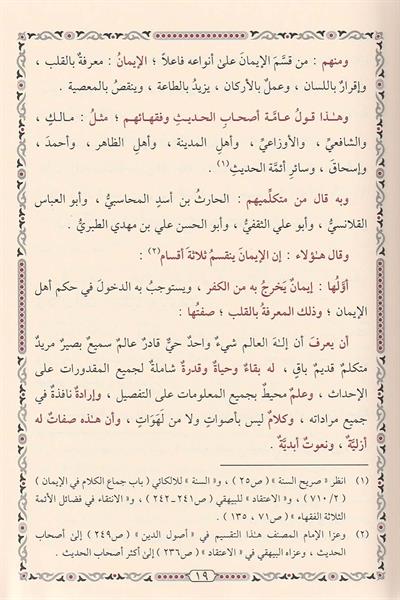 ومنهم : من قسَّمَ الإيمانَ علىٰ أنواعه فاعلاً ؛ الإيمانُ : معرفةٌ بالقلب ،
وإقرارٌ باللسان ، وعملٌ بالأركان ، يزيدُ بالطاعة ، وينقصُ بالمعصية .
وهـٰذا قولُ عامَّة أصحاب الحديثِ وفقهائهم ؛ مثلُ : مالكٍ ،
والشافعيِّ ، والأوزاعيِّ ، وأهلِ المدينة ، وأهلِ الظاهر ، وأحمدَ ،
وإسحاقَ ، وسائرِ أئمَّة الحديثِ(١) .
وبه قال من متكلِّميهم : الحارثُ بن أسدٍ المحاسبيُّ ، وأبو العباس
القلانسيُّ ، وأبو علي الثقفيُّ ، وأبو الحسن علي بن مهدي الطبريُّ .
وقال هـٰؤلاء : إن الإيمانَ ينقسمُ ثلاثةَ أقسام(٢) :
أوَّلُها : إيمانٌ يَخرجُ به من الكفر ، ويستوجبُ به الدخولَ في حكم أهل
الإيمان ؛ وذلك المعرفةُ بالقلب ؛ صفتُها :
أن يعرفَ أن إلـٰهَ العالم شيءٌ واحدٌ حيٌّ قادرٌ عالمٌ سميعٌ بصيرٌ مريدٌ
متكلمٌ قديمٌ باقٍ ، له بقاءٌ وحياةٌ وقدرةٌ شاملةٌ لجميع المقدورات على
الإحداث ، وعلمٌ محيطٌ بجميع المعلومات على التفصيل ، وإرادةٌ نافذةٌ في
جميع مراداته ، وكلامٌ ليس بأصواتٍ ولا من لَهَوَاتٍ ، وأن هـٰذه صفاتٌ له
أزليَّةٌ ، ونعوتٌ أبديَّةٌ .
(١) انظر « صريح السنة » ( ص٢٥ ) ، و« السنة » للالكائي ( باب جماع الكلام في الإيمان )
( ٧١٠/٢ ) ، و« الاعتقاد » للبيهقي ( ص٢٤١-٢٤٢ ) ، و« الانتقاء في فضائل الأئمة
الثلاثة الفقهاء » ( ص٧١ ، ١٣٥ ) .
(٢) وعزا الإمام المصنف هـٰذا التقسيم في « أصول الدين » ( ص٢٤٩ ) إلىٰ أصحاب
الحديث ، وعزاه البيهقي في « الاعتقاد » ( ص٢٣٦ ) إلىٰ أكثر أصحاب الحديث .
١٩